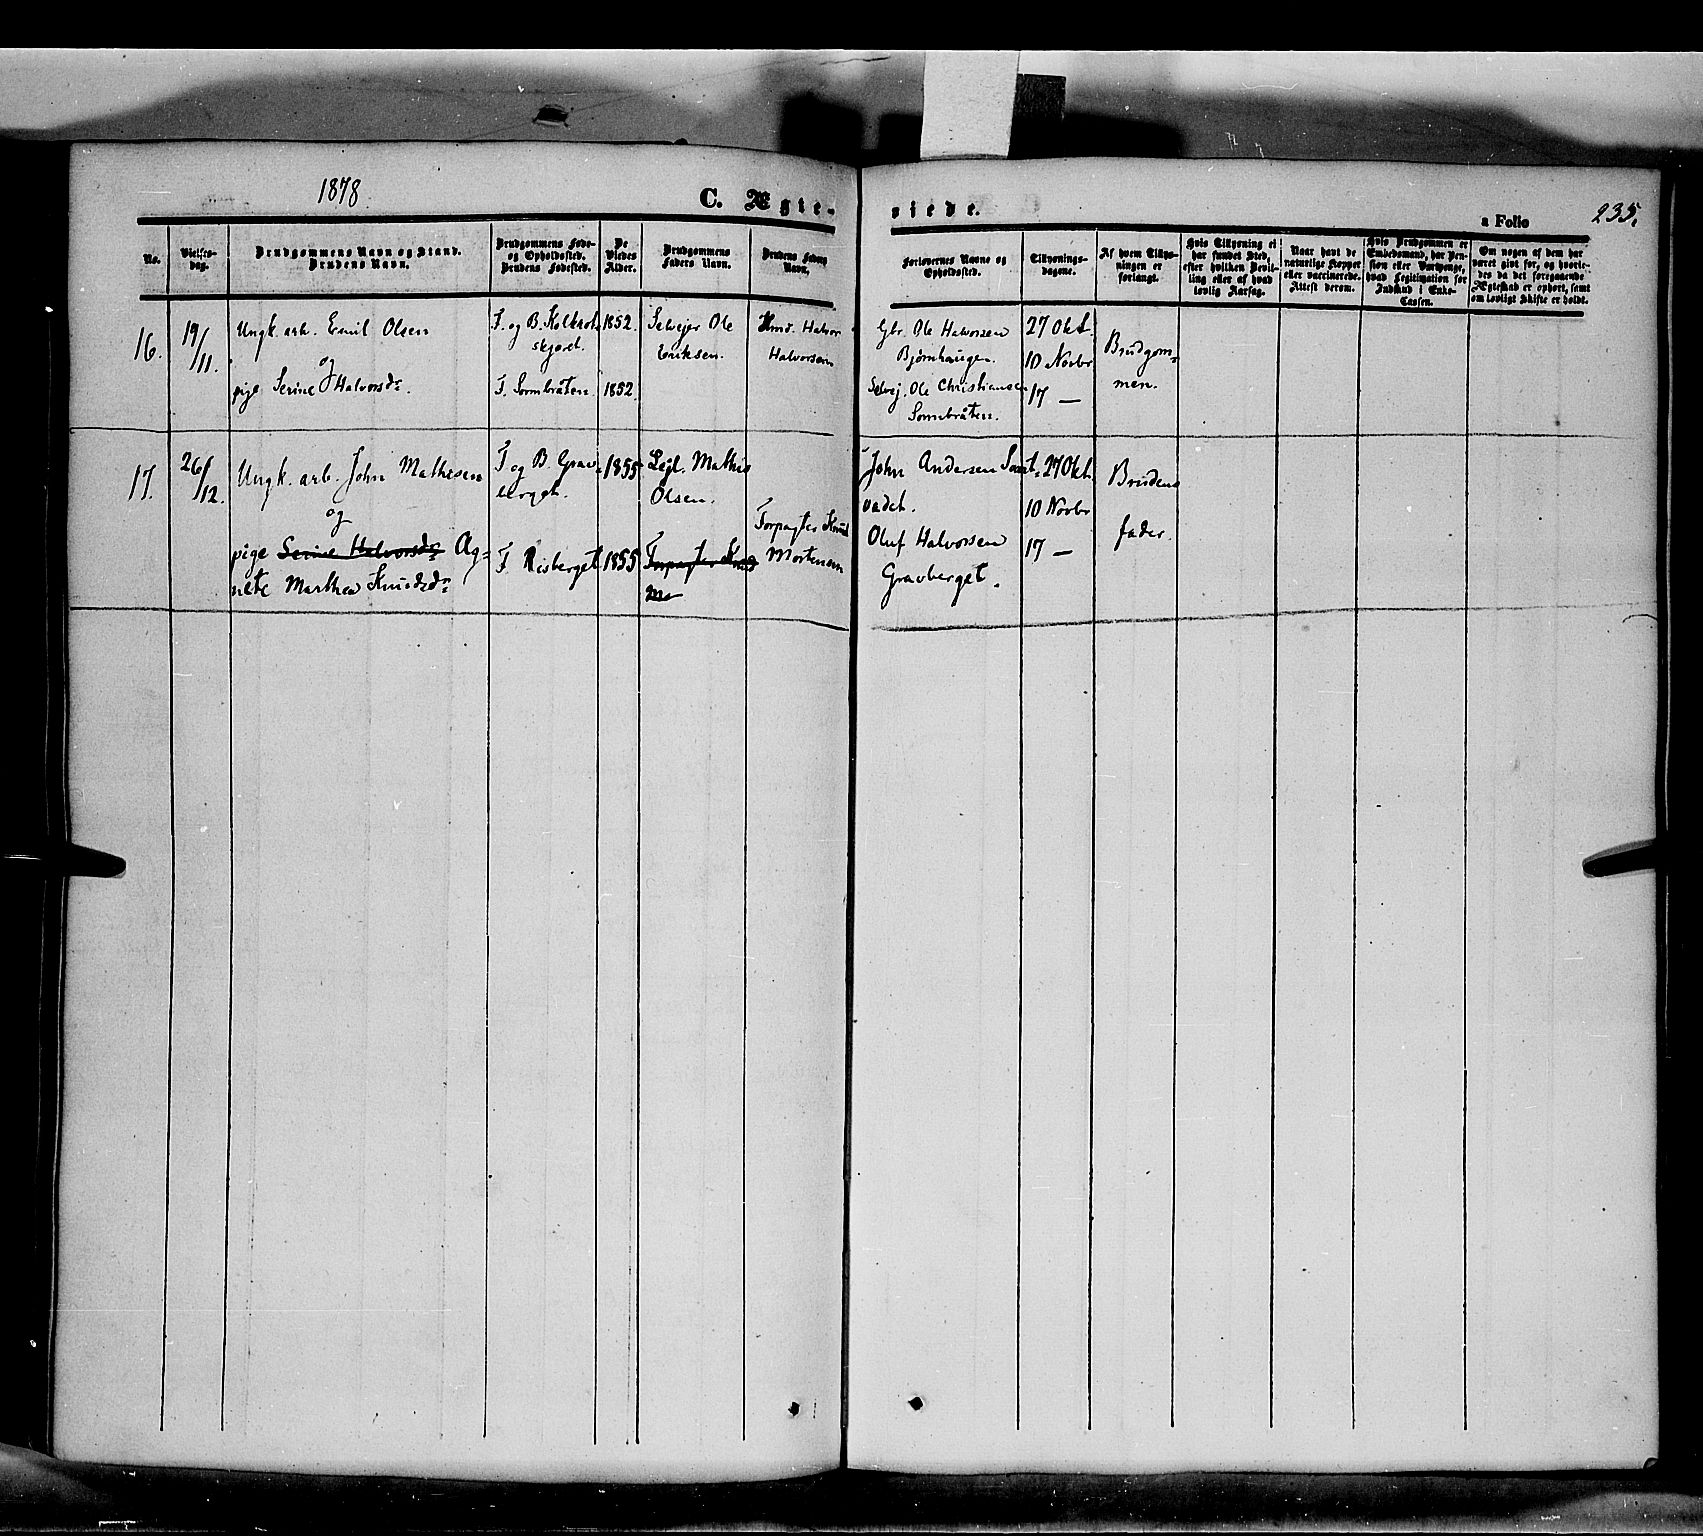 1878
C. Ægte-
viede.
a Folio
235.
No.
Vielses-
dag.
Brudgommens Navn og Stand.
Brudens Navn.
Brudgommens Føde-
og Opholdssted.
Brudens Fødested.
De
Viedes
Alder.
Brudgommens
Faders Navn.
Brudens Faders
Navn.
Forlovernes Navne og
Opholdssted.
Tillysnings-
dagene.
Af hvem Tillys-
ningen er
forlangt.
Hvis Tillysning ei
har fundet Sted,
efter hvilken Bevil-
ling eller af hvad
lovlig Aarsag.
Naar havt de
naturlige Kopper
eller vaccinerede.
Attest derom.
Hvis Brudgommen er
Embedsmand, har Pen-
sion eller Vartpenge,
hvad Legitimation for
Indskud i Enke-
Cassen.
Om nogen af dem har
været gift før, og hvorle-
des da det foregaaende
Ægteskab er ophørt, samt
om lovligt Skifte er holdt.
16.
19/11.
Ungk. arb. Emil Olsen
og
pige Serine Halvorsdr.
F. og B.
skjæret.
F. Sormbråten.
1852.
1852.
Selvejer Ole
Eriksen.
Halvor
Halvorsen
Gbr. Ole Halvorsen
Bjørnhaugen.
Selvej. Ole Christiansen
Sormbråten.
27 Okt.
10 Novbr
17 —
Brudgom-
men.
17.
26/12.
Ungk. arb. John Mathisen
og
pige Serine Halvorsdr Ag-
nete Marthea Knudsdr
F og B. Grav-
berget.
F. Risberget.
1855
1855
Legl. Mathis
Olsen.
Forpagter Knud
M
Forpagter Knud
Mortensen
John Andersen
vadet.
Oluf Halvorsen
Gravberget.
27 Okt.
10 Novbr
17 —
Brudens
fader.